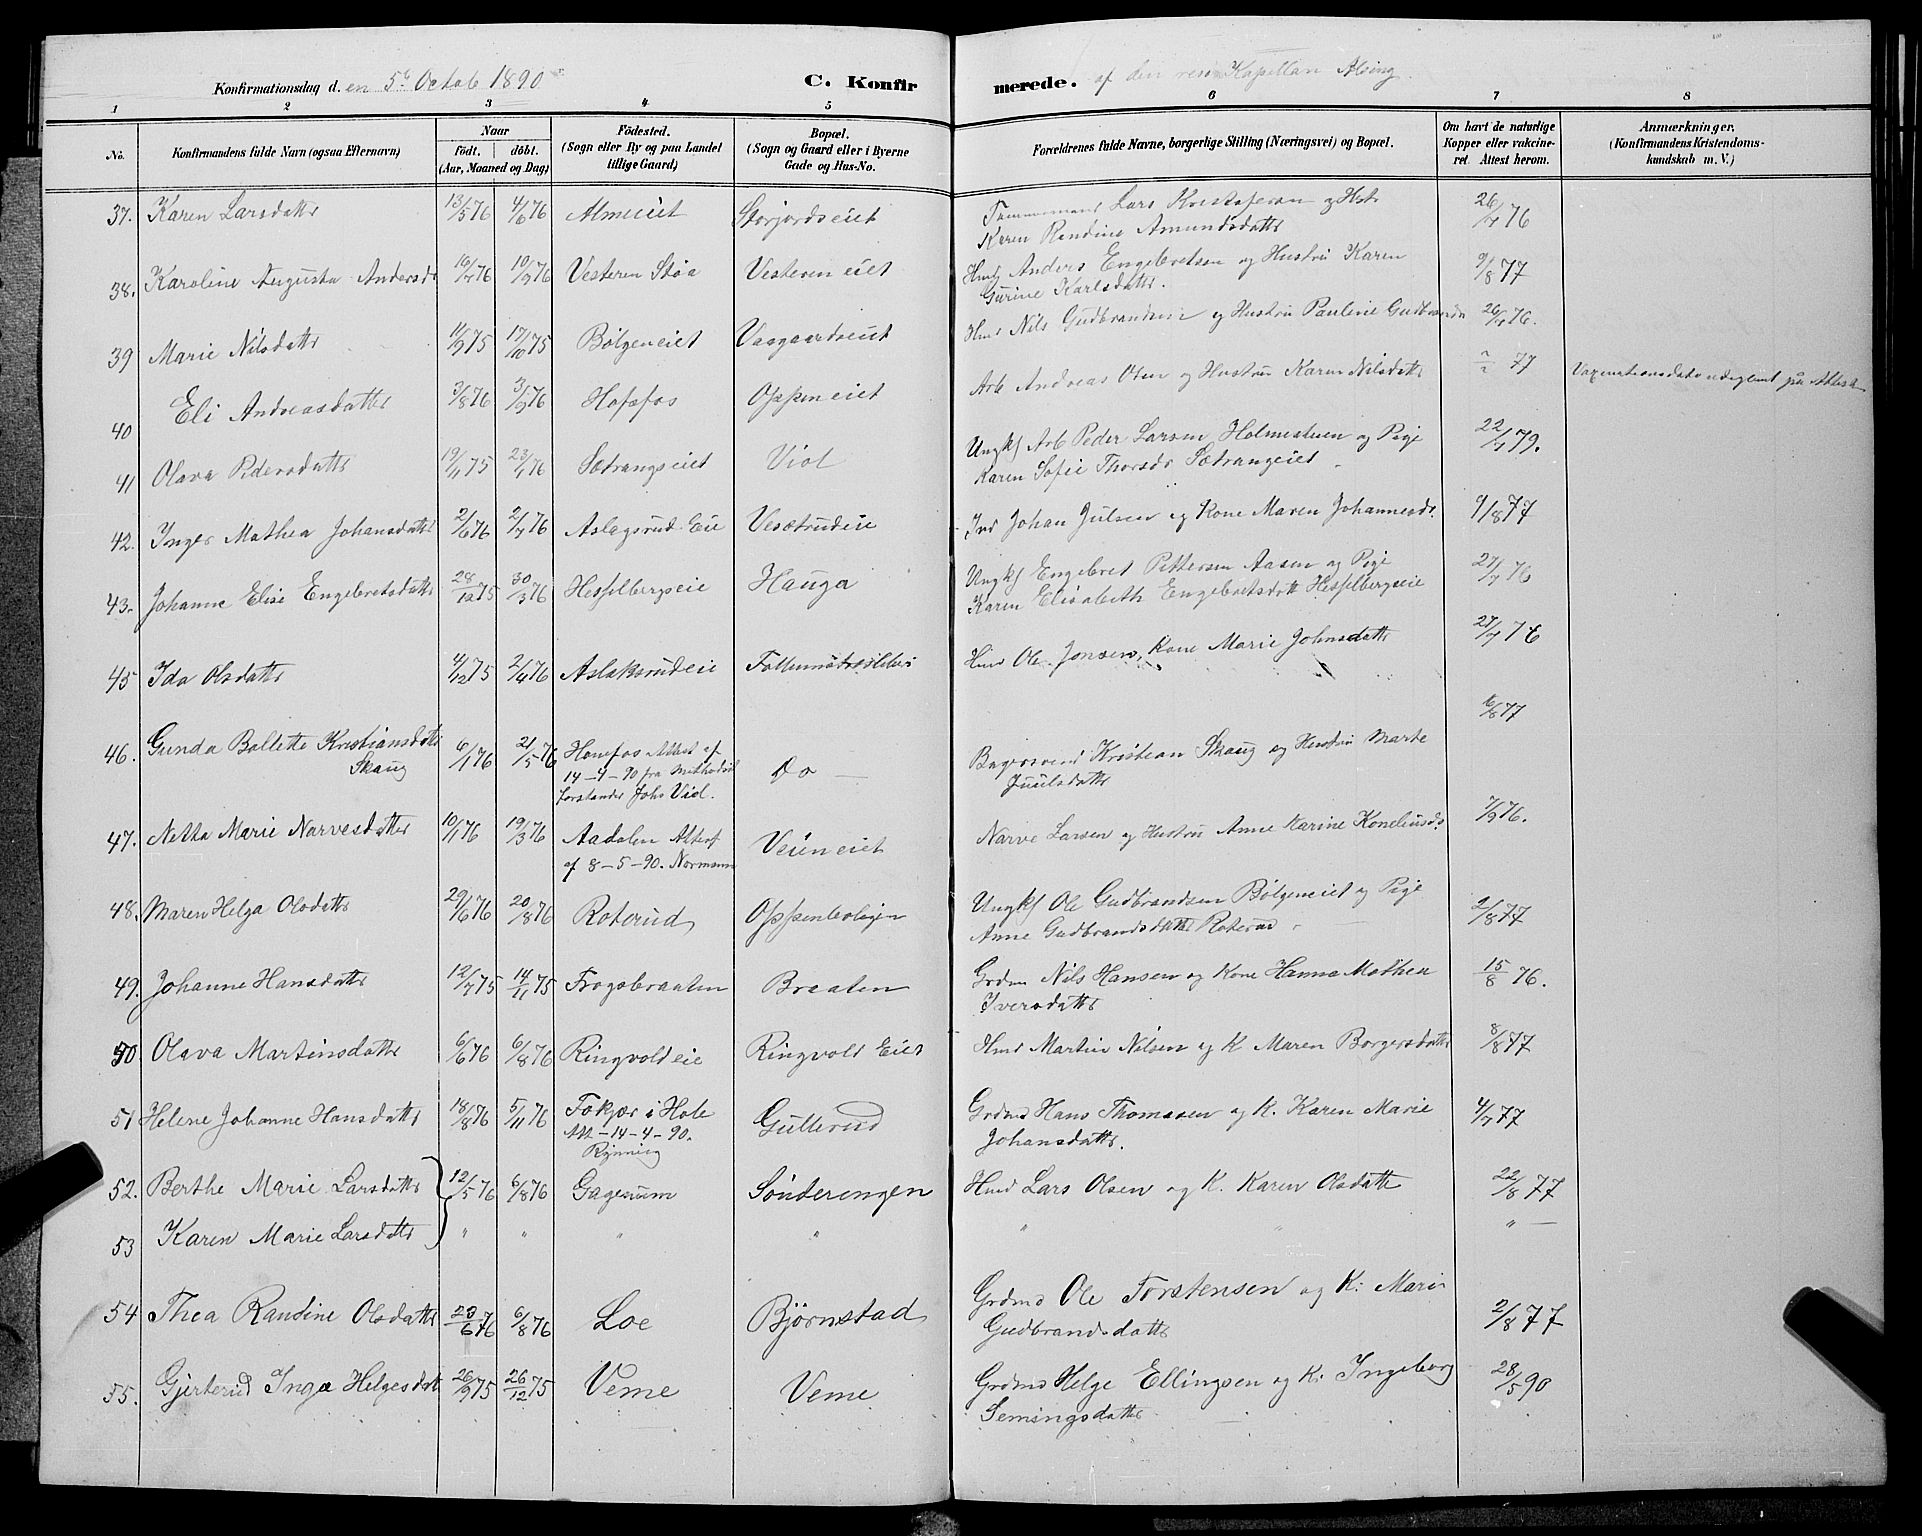 Konfirmationsdag den 5te Octob 1890 C. Konfir merede. af den resid Kapellan Alsing.
1 2 3 4 5 6 7 8
No. Konfirmandens fulde Navn (ogsaa Efternavn) Naar födt. döbt. (Aar, Maaned og Dag) Födested. (Sogn eller By og paa Landet tillige Gaard) Bopæl. (Sogn og Gaard eller i Byerne Gade og Hus-No. Forældrenes fulde Navne, borgerlige Stilling (Næringsvei) og Bopæl. Om havt de naturlige Kopper eller vakcineret. Attest herom. Anmærkninger. (Konfirmandens Kristendomskundskab m. V.)
37. Karen Larsdatter 13/5 76 4/6 76 Almeiet Storjordseiet Tømmermand Lars Kristofersen og Hstr 26/7 76
Karen Randine Amundsdatter
38. Karoline Augusta Andersd 16/7 76 10/9 76 Vesteren Støa Vesteren eiet Hmd Anders Engebretsen og Hustru Karen 9/8 77
Gurine Karlsdatter.
39 Marie Nilsdatter 11/9 75 17/10 75 Bølgeneiet Vaagaardseiet Hmd Nils Gudbrandsen og Hustru Pauline Gudbrandsd 26/7 76.
40 Eli Andreasdatter 3/8 76 3/9 76 Hofsfos Oppeneiet Arb Andreas Olsen og Hustru Karen Nilsdatter 77 Vaxinationsdato udeglemt på Attest
41 Olava Pedersdatter 19/11 75 23/1 76 Sætrangseiet Viol Ungkf Arb Peder Larsen Holmestuen og Pige 22/7 79.
Karen Sofie Thorsdr Sætrangeiet
42. Inger Mathea Johansdatter 2/6 76 2/7 76 Aslagsrud Eie Vesætrudeie Ind Johan Julsen og Kone Maren Johannesdr. 9/8 77
43. Johanne Elise Engebretsdatter 28/12 75 30/3 76 Hesselbergseie Hauga Ungkf Engebret Pettersen Aasen og Pige 27/7 76
Karen Elisabeth Engebretsdatt Hesselbergseie
45 Ida Olsdatter 4/12 75 2/4 76 Aslaksrudeie Hmd Ole Jonsen, Kone Marie Johnsdatter 27/7 76
46. Gunda Bollette Kristiansdatter 6/1 76 21/5 76 Hønefos Attest af Do Bagersvend Kristian Skaug og Hustru Marte 6/8 77
Skaug 14-4-90 fra Methodist
forstander Johs Viol. Juulsdatter
47. Netta Marie Narvesdatter 10/1 76 19/3 76 Aadalen Attest Veieneiet Narve Larsen og Hustru Anne Karine Korneliusd. 7/9 76.
af 8-5-90. Normann
48. Maren Helga Olsdatter 29/6 76 20/8 76 Roterud Oppenboligen Ungkf Ole Gudbrandsen Bølgeneiet og Pige 2/8 77
Anne Gudbrandsdatter Roterud
49. Johanne Hansdatter 12/7 75 14/11 75 Frogsbraaten Braaten Grdm Nils Hansen og Kone Hanna Mathea 15/8 76.
Iversdatter
50. Olava Martinsdatter 6/6 76 6/8 76 Ringvoldeie Ringvold Eiet Hmd Martin Nilsen og K Maren Borgersdatter 8/8 77
51 Helene Johanne Hansdatter 18/8 76 5/11 76 Fokjær i Hole Gullerud Grdmd Hans Thomasen og K. Karen Marie 4/7 77
Att-14-4-90. Johansdatter.
Rynning
52. Berthe Marie Larsdatter 12/5 76 6/8 76 Gagnum Sönderengen Hmd Lars Olsen og K. Karen Olsdatter 22/8 77
53 Karen Marie Larsdatter " " " " " " " —
54 Thea Randine Olsdatter 23/6 76 6/8 76 Loe Bjørnstad Grdmd Ole Torstensen og K: Mari 2/8 77
Gudbrandsdatter
55. Gjerterud Inga Helgesdatt 26/9 75 26/12 75 Veme Veme Grdmd Helge Ellingsen og K: Ingeborg 28/5 90
Semingsdatter